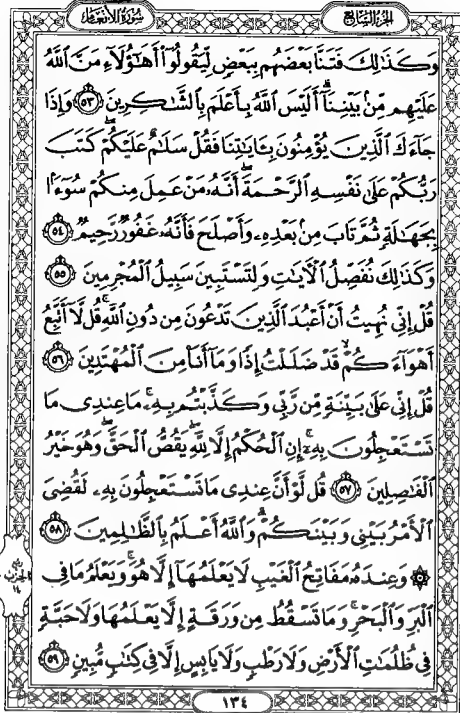 الجزء السابع
سورة الأنعام
وَكَذَٰلِكَ فَتَنَّا بَعْضَهُم بِبَعْضٍ لِّيَقُولُوٓا۟ أَهَٰٓؤُلَآءِ مَنَّ ٱللَّهُ
عَلَيْهِم مِّنۢ بَيْنِنَآ ۗ أَلَيْسَ ٱللَّهُ بِأَعْلَمَ بِٱلشَّٰكِرِينَ ٥٣ وَإِذَا
جَآءَكَ ٱلَّذِينَ يُؤْمِنُونَ بِـَٔايَٰتِنَا فَقُلْ سَلَٰمٌ عَلَيْكُمْ ۖ كَتَبَ
رَبُّكُمْ عَلَىٰ نَفْسِهِ ٱلرَّحْمَةَ ۖ أَنَّهُۥ مَنْ عَمِلَ مِنكُمْ سُوٓءًۢا
بِجَهَٰلَةٍ ثُمَّ تَابَ مِنۢ بَعْدِهِۦ وَأَصْلَحَ فَأَنَّهُۥ غَفُورٌ رَّحِيمٌ ٥٤
وَكَذَٰلِكَ نُفَصِّلُ ٱلْـَٔايَٰتِ وَلِتَسْتَبِينَ سَبِيلُ ٱلْمُجْرِمِينَ ٥٥
قُلْ إِنِّى نُهِيتُ أَنْ أَعْبُدَ ٱلَّذِينَ تَدْعُونَ مِن دُونِ ٱللَّهِ ۚ قُل لَّآ أَتَّبِعُ
أَهْوَآءَكُمْ ۙ قَدْ ضَلَلْتُ إِذًا وَمَآ أَنَا۠ مِنَ ٱلْمُهْتَدِينَ ٥٦
قُلْ إِنِّى عَلَىٰ بَيِّنَةٍ مِّن رَّبِّى وَكَذَّبْتُم بِهِۦ ۚ مَا عِندِى مَا
تَسْتَعْجِلُونَ بِهِۦٓ ۚ إِنِ ٱلْحُكْمُ إِلَّا لِلَّهِ ۖ يَقُصُّ ٱلْحَقَّ ۖ وَهُوَ خَيْرُ
ٱلْفَٰصِلِينَ ٥٧ قُل لَّوْ أَنَّ عِندِى مَا تَسْتَعْجِلُونَ بِهِۦ لَقُضِىَ
ٱلْأَمْرُ بَيْنِى وَبَيْنَكُمْ ۗ وَٱللَّهُ أَعْلَمُ بِٱلظَّٰلِمِينَ ٥٨
۞ وَعِندَهُۥ مَفَاتِحُ ٱلْغَيْبِ لَا يَعْلَمُهَآ إِلَّا هُوَ ۚ وَيَعْلَمُ مَا فِى
ٱلْبَرِّ وَٱلْبَحْرِ ۚ وَمَا تَسْقُطُ مِن وَرَقَةٍ إِلَّا يَعْلَمُهَا وَلَا حَبَّةٍ
فِى ظُلُمَٰتِ ٱلْأَرْضِ وَلَا رَطْبٍ وَلَا يَابِسٍ إِلَّا فِى كِتَٰبٍ مُّبِينٍ ٥٩
الحزب
١٤
١٣٤